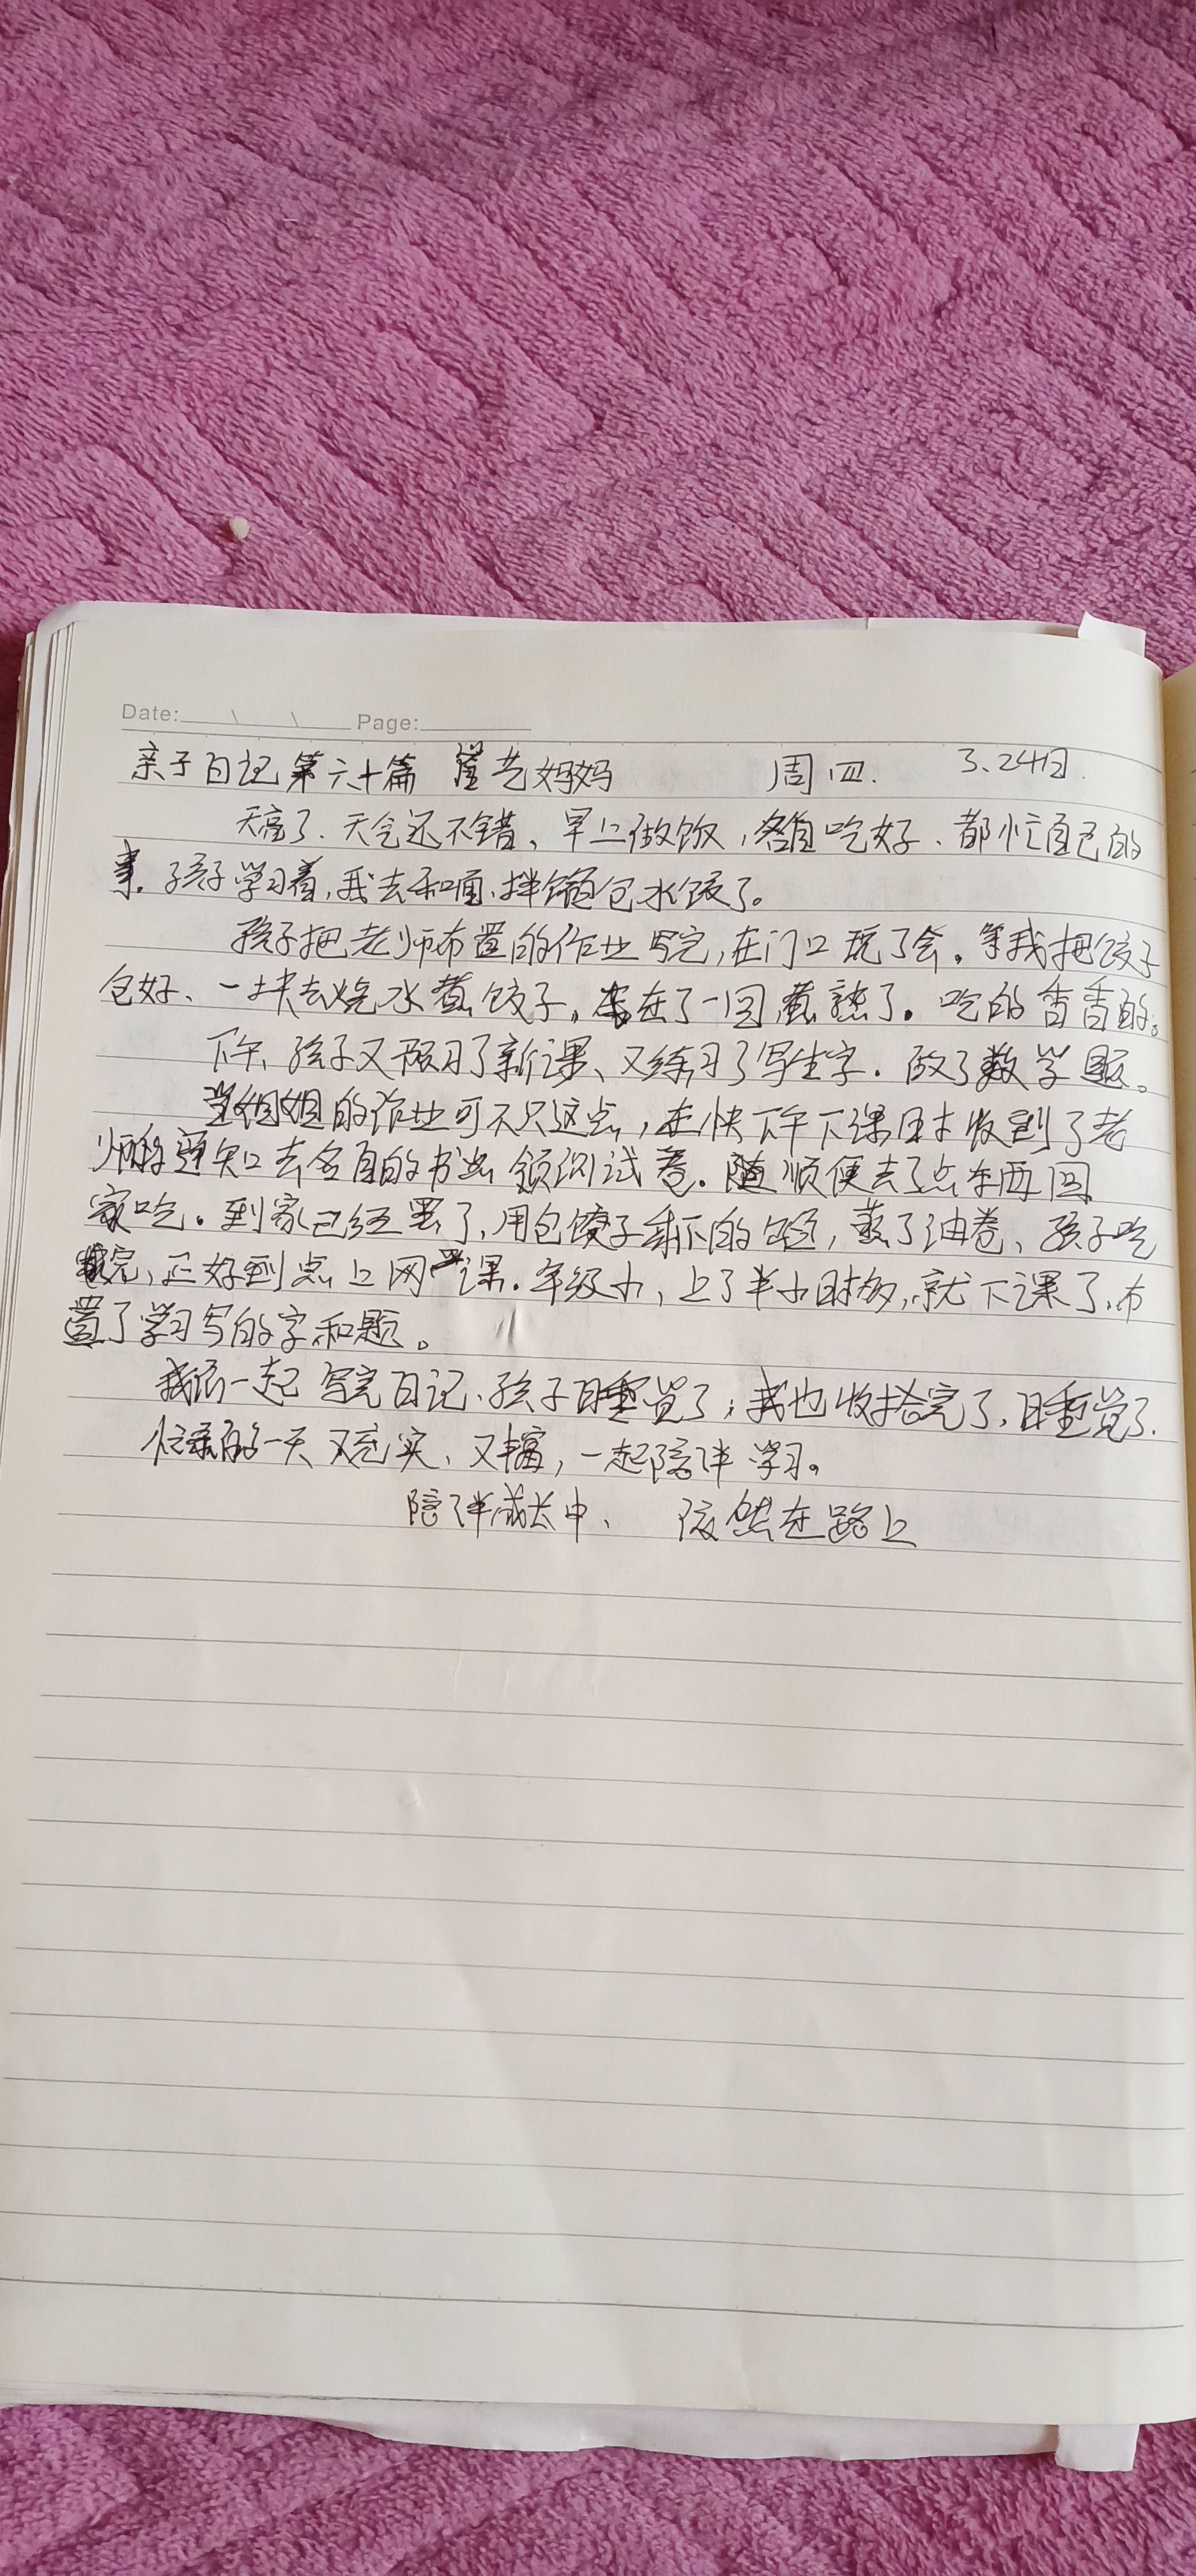 Date: \ \ Page:
亲子日记第六十篇 艺妈妈 周四. 3.24日.
天亮了.天气还不错、早上做饭,各自吃好、都忙自己的
事.孩子学习着,我去和面、拌馅包水饺了。
孩子把老师布置的作业写完,在门口玩了会。等我把饺子
包好、一块去烧水煮饺子。在了一回煮熟了。吃的香香的。
下午、孩子又预习了新课、又练习了写生字.做了数学题。
当姐姐的作业可不只这点,在快下午下课时收到了老
师的通知去各自的书出领测试卷.随顺便去了点东西回
家吃。到家已经黑了,用包饺子剩下的面,蒸了油卷、孩子吃
完,正好到点上网课.年级小,上了半小时多,就下课了,布
置了学习写的字和题。
我们一起写完日记、孩子睡觉了;我也收拾完了,睡觉了.
忙碌的一天又充实、又丰富,一起陪伴学习。
陪伴成长中、 依然在路上